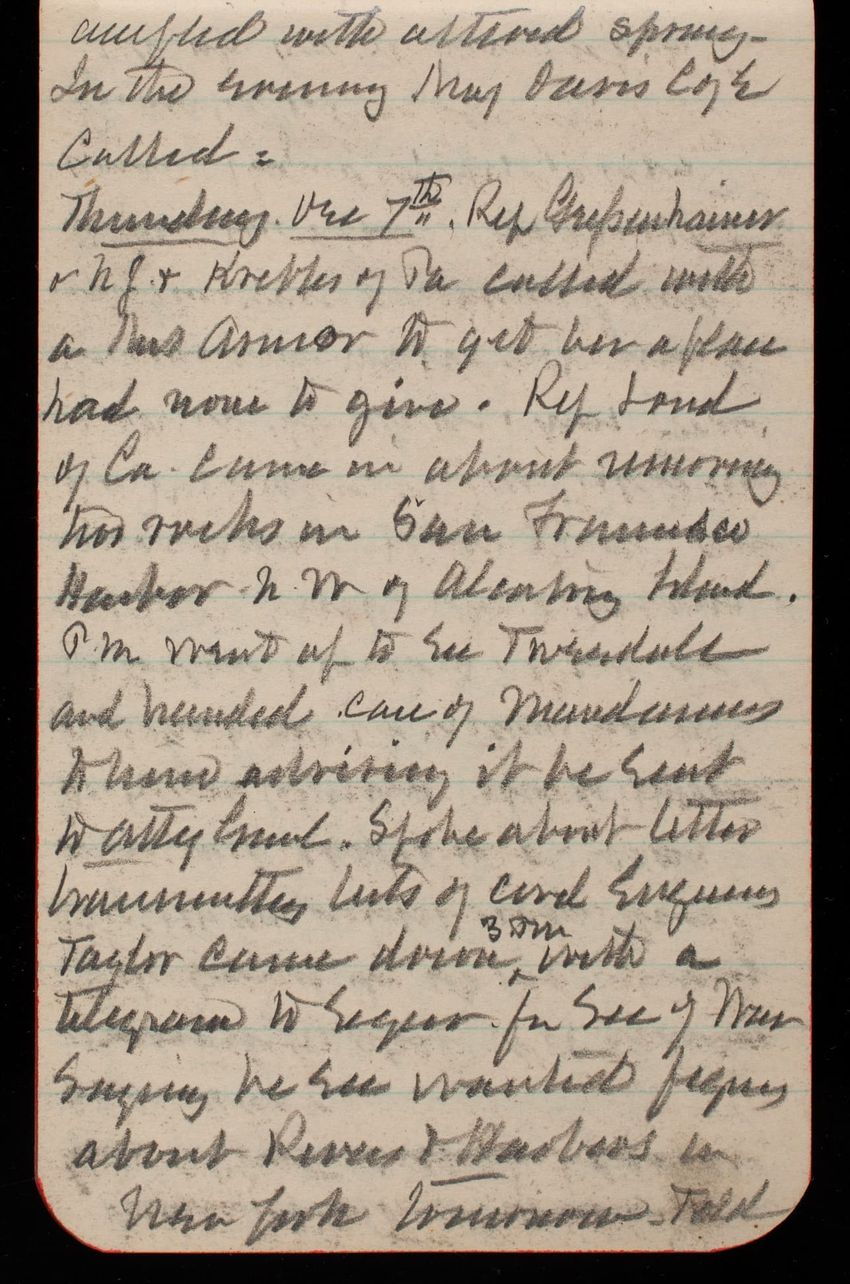 with altered spring -
In the evening Maj Davis C of E
Called =
Thursday. Dec 7th. Rep Geissenhainer
o N J. & Kribbs of Pa called with
a Mrs Armor to get her a place
had none to give. Rep Loud
of Ca. came in about removing
two rocks in San Francisco
Harbor N. W of Alcatraz Island.
P.M went up to See Tweedale
and handed case of Mandamus
to him advising it be sent
to Atty Genl. Spoke about letter
transmitting lists of Civil Engineers
Taylor came down, 3 P.M with a
telegram to from Sec of War
Saying he Sec wanted figures
about Rivers & Harbors in
New York tomorrow. Told